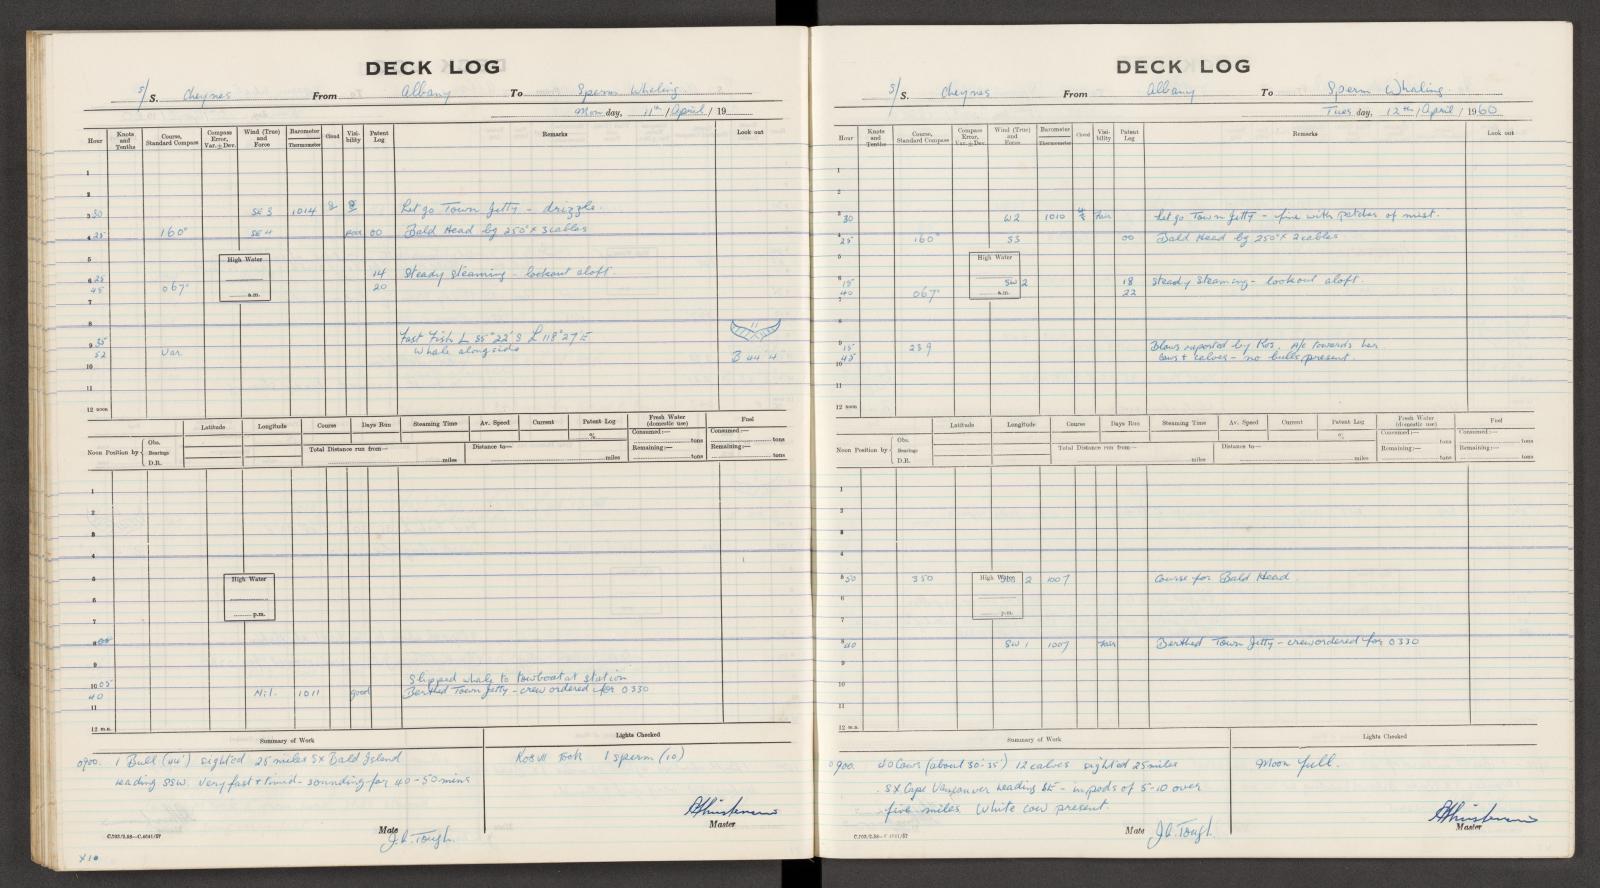 DECK LOG
S/S. Cheynes From Albany To Sperm Whaling
Mon day, 11th / April / 19
Hour Knots and Tenths Course, Standard Compass Compass Error, Var. ± Dev. Wind (True) and Force Barometer Thermometer Cloud Visibility Patent Log Remarks Look out
1
2
3 30 SE 3 1014 8 Let go Town Jetty - drizzle.
4 25 160° SE 4 Poor 00 Bald Head by 250° x 3 cables
5 High Water
6 25 14 Steady steaming - lookout aloft.
45 067° 20
7 a.m.
8 11
9 35 Fast Fish L 35° 22' S L 118° 27' E
52 Var. Whale alongside B 44 4
10
11
12 noon
Latitude Longitude Course Days Run Steaming Time Av. Speed Current Patent Log Fresh Water (domestic use) Fuel
% Consumed:— tons Consumed:— tons
Noon Position by Obs. Bearings D.R. Total Distance run from— miles Distance to— miles Remaining:— tons Remaining:— tons
1
2
3
4
5 High Water
6
7 p.m.
8 00
9
Slipped whale to towboat at station
10 05
40 Nil. 1011 good Berthed Town Jetty - crew ordered for 0330
11
12 m.n.
Summary of Work Lights Checked
0900. 1 Bull (44') sighted 25 miles S x Bald Island Kos II took 1 sperm (10)
heading SSW. Very fast + timid - sounding for 40 - 50 mins
Master
Mate J.A. Tough.
C.702/2.58—C.6041/57
X10
DECK LOG
S/S. Cheynes From Albany To Sperm Whaling
Tues day, 12th / April / 1960
Hour Knots and Tenths Course, Standard Compass Compass Error, Var. ± Dev. Wind (True) and Force Barometer Thermometer Cloud Visibility Patent Log Remarks Look out
1
2
3 30 W2 1010 Fair Let go Town Jetty - fine with patches of mist.
4 25 160° S3 00 Bald Head by 250° x 2 cables
5 High Water
6 15 SW 2 18 Steady Steaming - lookout aloft.
40 067° 22
7 a.m.
8
9 15 239 Blows reported by Kos. A/c towards her
45 Cows + calves - no bulls present.
10
11
12 noon
Latitude Longitude Course Days Run Steaming Time Av. Speed Current Patent Log Fresh Water (domestic use) Fuel
% Consumed:— tons Consumed:— tons
Noon Position by Obs. Bearings D.R. Total Distance run from— miles Distance to— miles Remaining:— tons Remaining:— tons
1
2
3
4
5 50 350 High Water 2 1007 Course for Bald Head
6
7 p.m.
8 40 SW 1 1007 Fair Berthed Town Jetty - crew ordered for 0330
9
10
11
12 m.n.
Summary of Work Lights Checked
0900. 40 Cows (about 30-35') 12 calves sighted 25 miles Moon full.
S x Cape Vancouver heading SE - in pods of 5-10 over
five miles. White cow present.
Master
Mate J.A. Tough.
C.702/2.58—C.6041/57